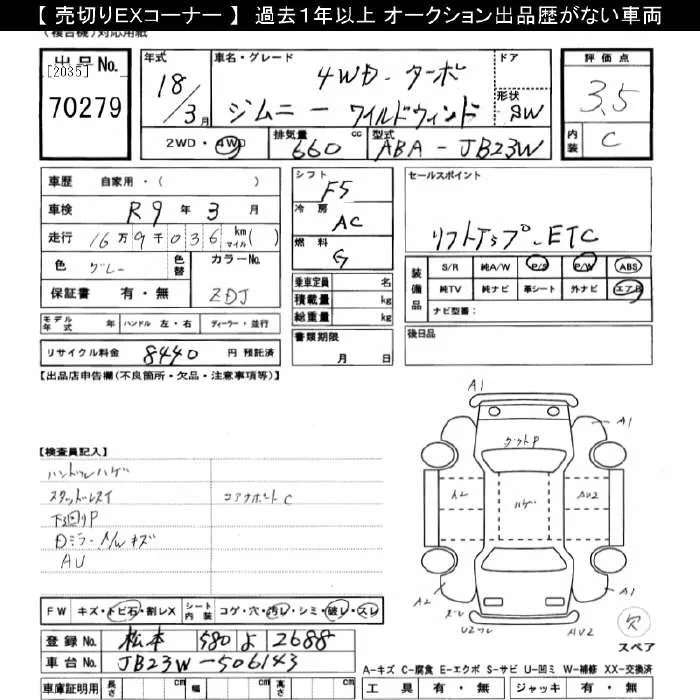 【 売切りEXコーナー 】 過去１年以上 オークション出品歴がない車両
(複合機)対応用紙
出品No.
[2035]
70279
年式 18/3月
車名・グレード 4WD・ターボ
ジムニー ワイルドウィンド
ドア
形状 SW
評価点 3.5
内装 C
2WD・4WD
排気量 660 cc
型式 ABA-JB23W
車歴 自家用・( )
車検 R9年3月
走行 16万9千036 km マイル( )
色 グレー 色替 カラーNo. ZDJ
保証書 有・無
シフト F5
冷房 AC
燃料 G
乗車定員 名
積載量 kg
総重量 kg
セールスポイント
リフトアップ、ETC
装備品 S/R 純A/W P/S P/W ABS
純TV 純ナビ 革シート 外ナビ エアB
ナビ型番:
モデル年式 年 ハンドル 左・右 ディーラー・並行
リサイクル料金 8440 円 預託済
書類期限
月 日
後日品
【出品店申告欄(不良箇所・欠品・注意事項等)】
A1
A1
【検査員記入】
ハンドルハゲ
スタッドレスタイ
コアサポートC
下回りP
Dミラー・A/Wキズ
AU
A2
ハゲ
AU2
A2
U2ワレ
AU2
欠
スペア
FW キズ・トビ石・割レX シート内装 コゲ・穴・汚レ・シミ・破レ・スレ
登録No. 松本 580 よ 2688
車台No. JB23W-506143
A−キズ C−腐食 E−エクボ S−サビ U−凹ミ W−補修 XX−交換済
車庫証明用 長さ cm 幅 cm 高さ cm
工具 有・無 ジャッキ 有・無